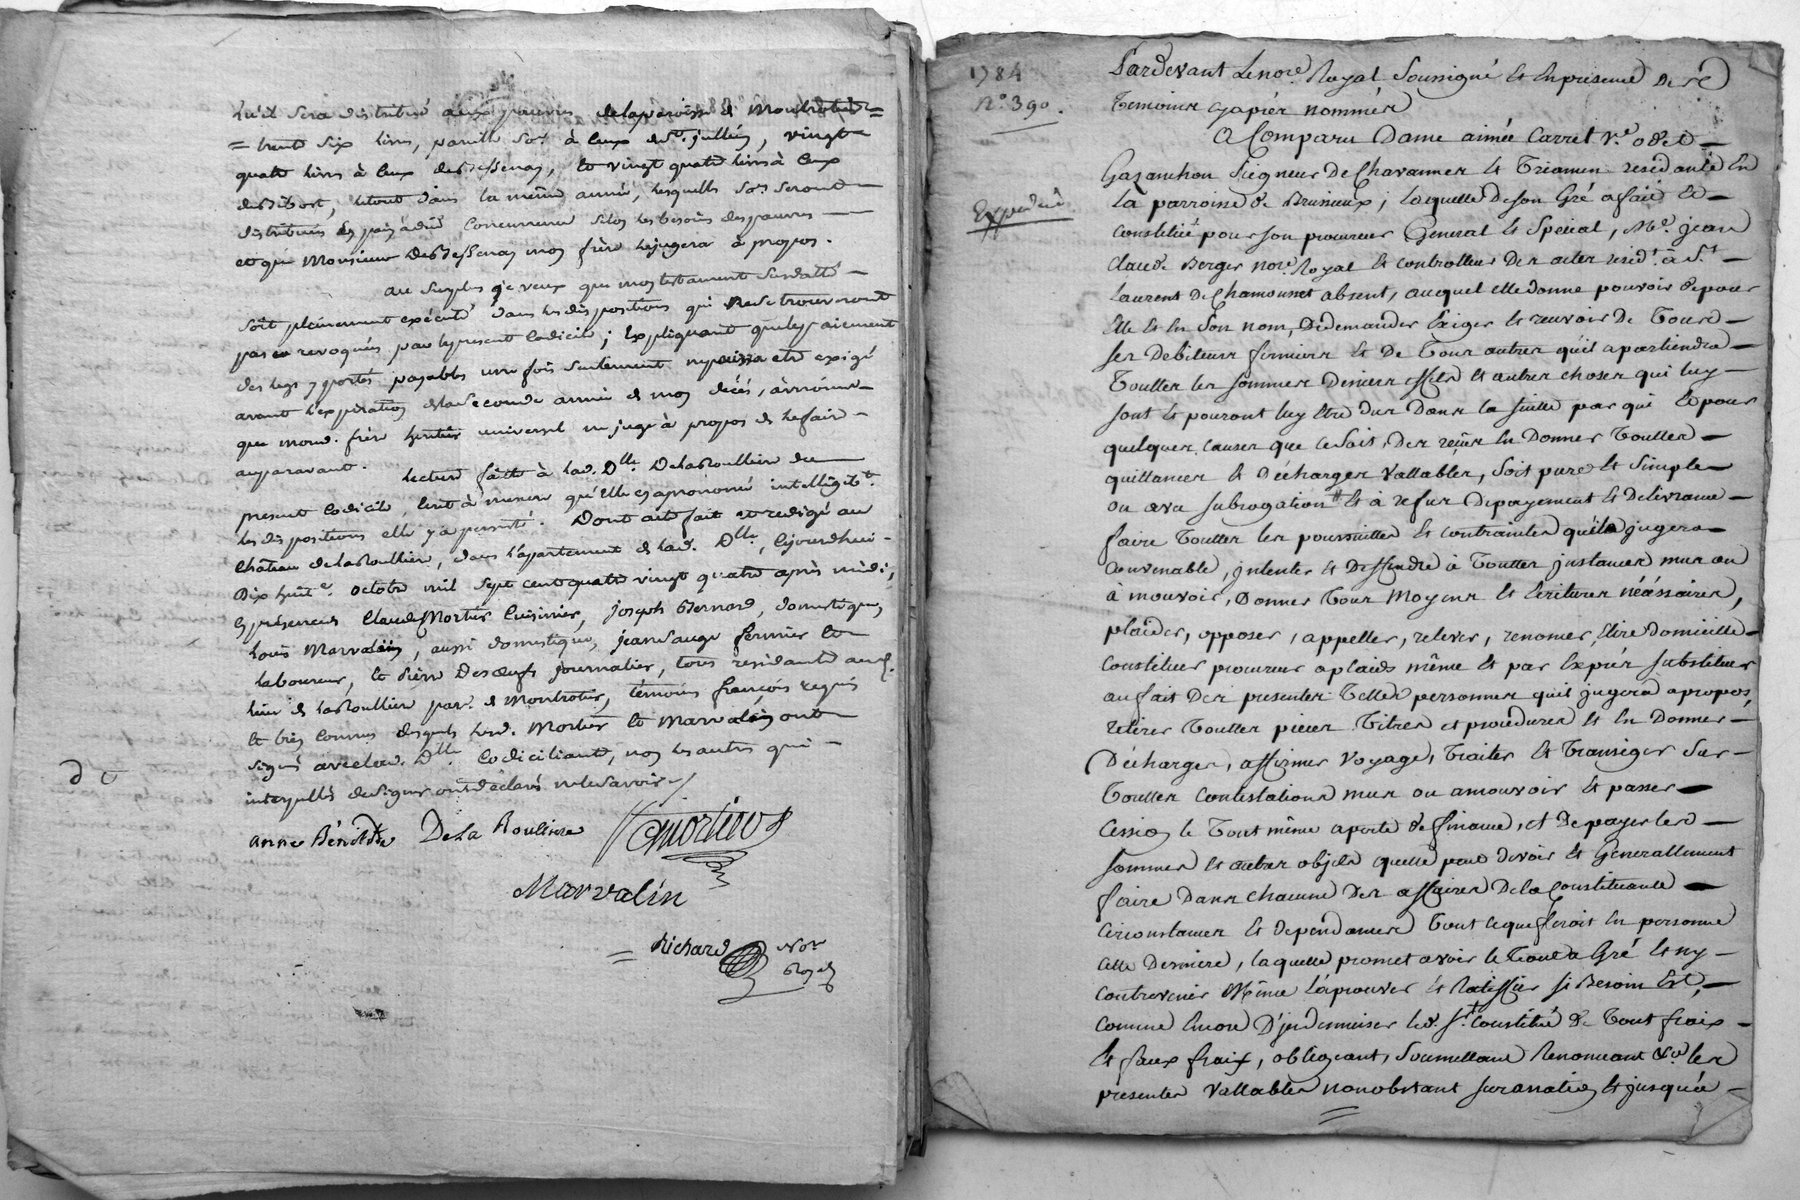 qu'il sera distribué aux pauvres de la paroisse de Montrotier =
= trente six livres, pareille so.e à ceux de St. jullien, vingt
quatre livres à ceux de Bessenay, et vingt quatre livres à ceux
de Bibost, le tout dans la même année, lesquelles so.es seront
distribuées en pain à düe concurrence selon les besoins des pauvres
et que Monsieur de Bessenay mon frère le jugera à propos.
au surplus je veux que mon testament susdatté
soit pleinement exécuté dans les dispositions qui ne se trouveront
pas revoqués par le present codicile; Expliquant que les payements
des legs y portés payables une fois seulement ne puisse etre exigé
avant l'expiration de la seconde année de mon décés, à moins
que mond. frère heritier universel ne juge à propos de le faire
auparavant. lecture faitte à lad. Dlle. DelaRoulliere du
present codicile, tout à mesure qu'elle en a prononcé intelligibt.
les dispositions elle y a persisté. Dont acte fait et redigé au
château de la Roulliere, dans l'appartement de lad. Dlle., cejourdhui
Dix huit e. octobre mil sept cent quatre vingt quatre après midi,
en présence de Claude Mortier Cuisinier, joseph Bernard, domestique,
Louis Marvalin, aussi domestique, jean Sauge fermier et
laboureur, et Pierre Desoeufs journalier, tous residants aud.
lieu de la Roulliere par. de Montrotier, témoins françois requis
et bien connus desquels lesd. Mortier et Marvalin ont
signé avec lad. Dlle. Codiciliante, non les autres qui
interpellés de signer ont déclaré ne le savoir /
anne Bénoitte De La Rouliere Mortier
Marvalin
= Richard Nore
Royal
1784
N.o 390.
Expedié
Pardevant Le nore. Royal Soussigné Et En presence Des
Temoins cy aprés nommés
A Comparu Dame aimée Carret Ve. odet
Gazanchon Seigneur De Chavannes Et Triamen residante En
La parroisse de Brussieux; laquelle de son Gré a fait Et
Constitué pour son procureur General Et Special, Me. jean
Claude Berger nore. Royal Et Controlleur Des actes residt. à St.
Laurent De Chamousset absent, auquel elle donne pouvoir de pour
Elle Et En Son nom, De demander Exiger Et recevoir De Tous
ses Debiteurs fermiers Et De Tous autres qu'il apartiendra
Touttes les sommes Deniers effets Et autres choses qui luy
sont Et pouront luy Etre Dus Dans la suitte par qui Et pour
quelques causes que ce soit, Des reçus En Donner Touttes
quittances Et Décharges Vallables, Soit pure Et Simple
ou avec subrogation Et à refus De payement Et Delivrance
faire Touttes les poursuittes Et Contraintes qu'il jugera
Convenable, jntenter Et Deffendre à Touttes jnstances mues ou
à mouvoir, Donner Tous Moyens Et Ecritures nécéssaires,
plaider, opposer, appeller, relever, renoncer, Elire Domicille
Constituer procureur a plaids même Et par Exprés substituer
au fait Des presentes Telles personnes qu'il jugera apropos,
retirer Touttes pieces Titres et procedures Et En Donner
Décharges, affirmer Voyage, Traiter Et Transiger Sur
Touttes Contestations mues ou a mouvoir Et passer
Cession le Tout même a perte de finance, Et De payer les
sommes Et autres objets quelle peut Devoir Et Generallement
faire Dans chacune Des affaires De la Constituante
Circonstances Et dependances Tout ce que feroit En personne
Cette Derniere, laquelle promet avoir le Tout à Gré Et n'y
Contrevenir Même l'aprouver Et Ratiffier si Besoin Est,
Comme Encore D'jndemniser led. Sr. Constitué de Tout fraix
Et faux fraix, obligeant, Soumettant Renonceant &c. les
presentes Vallables nonobstant surannation Et jusqu'à